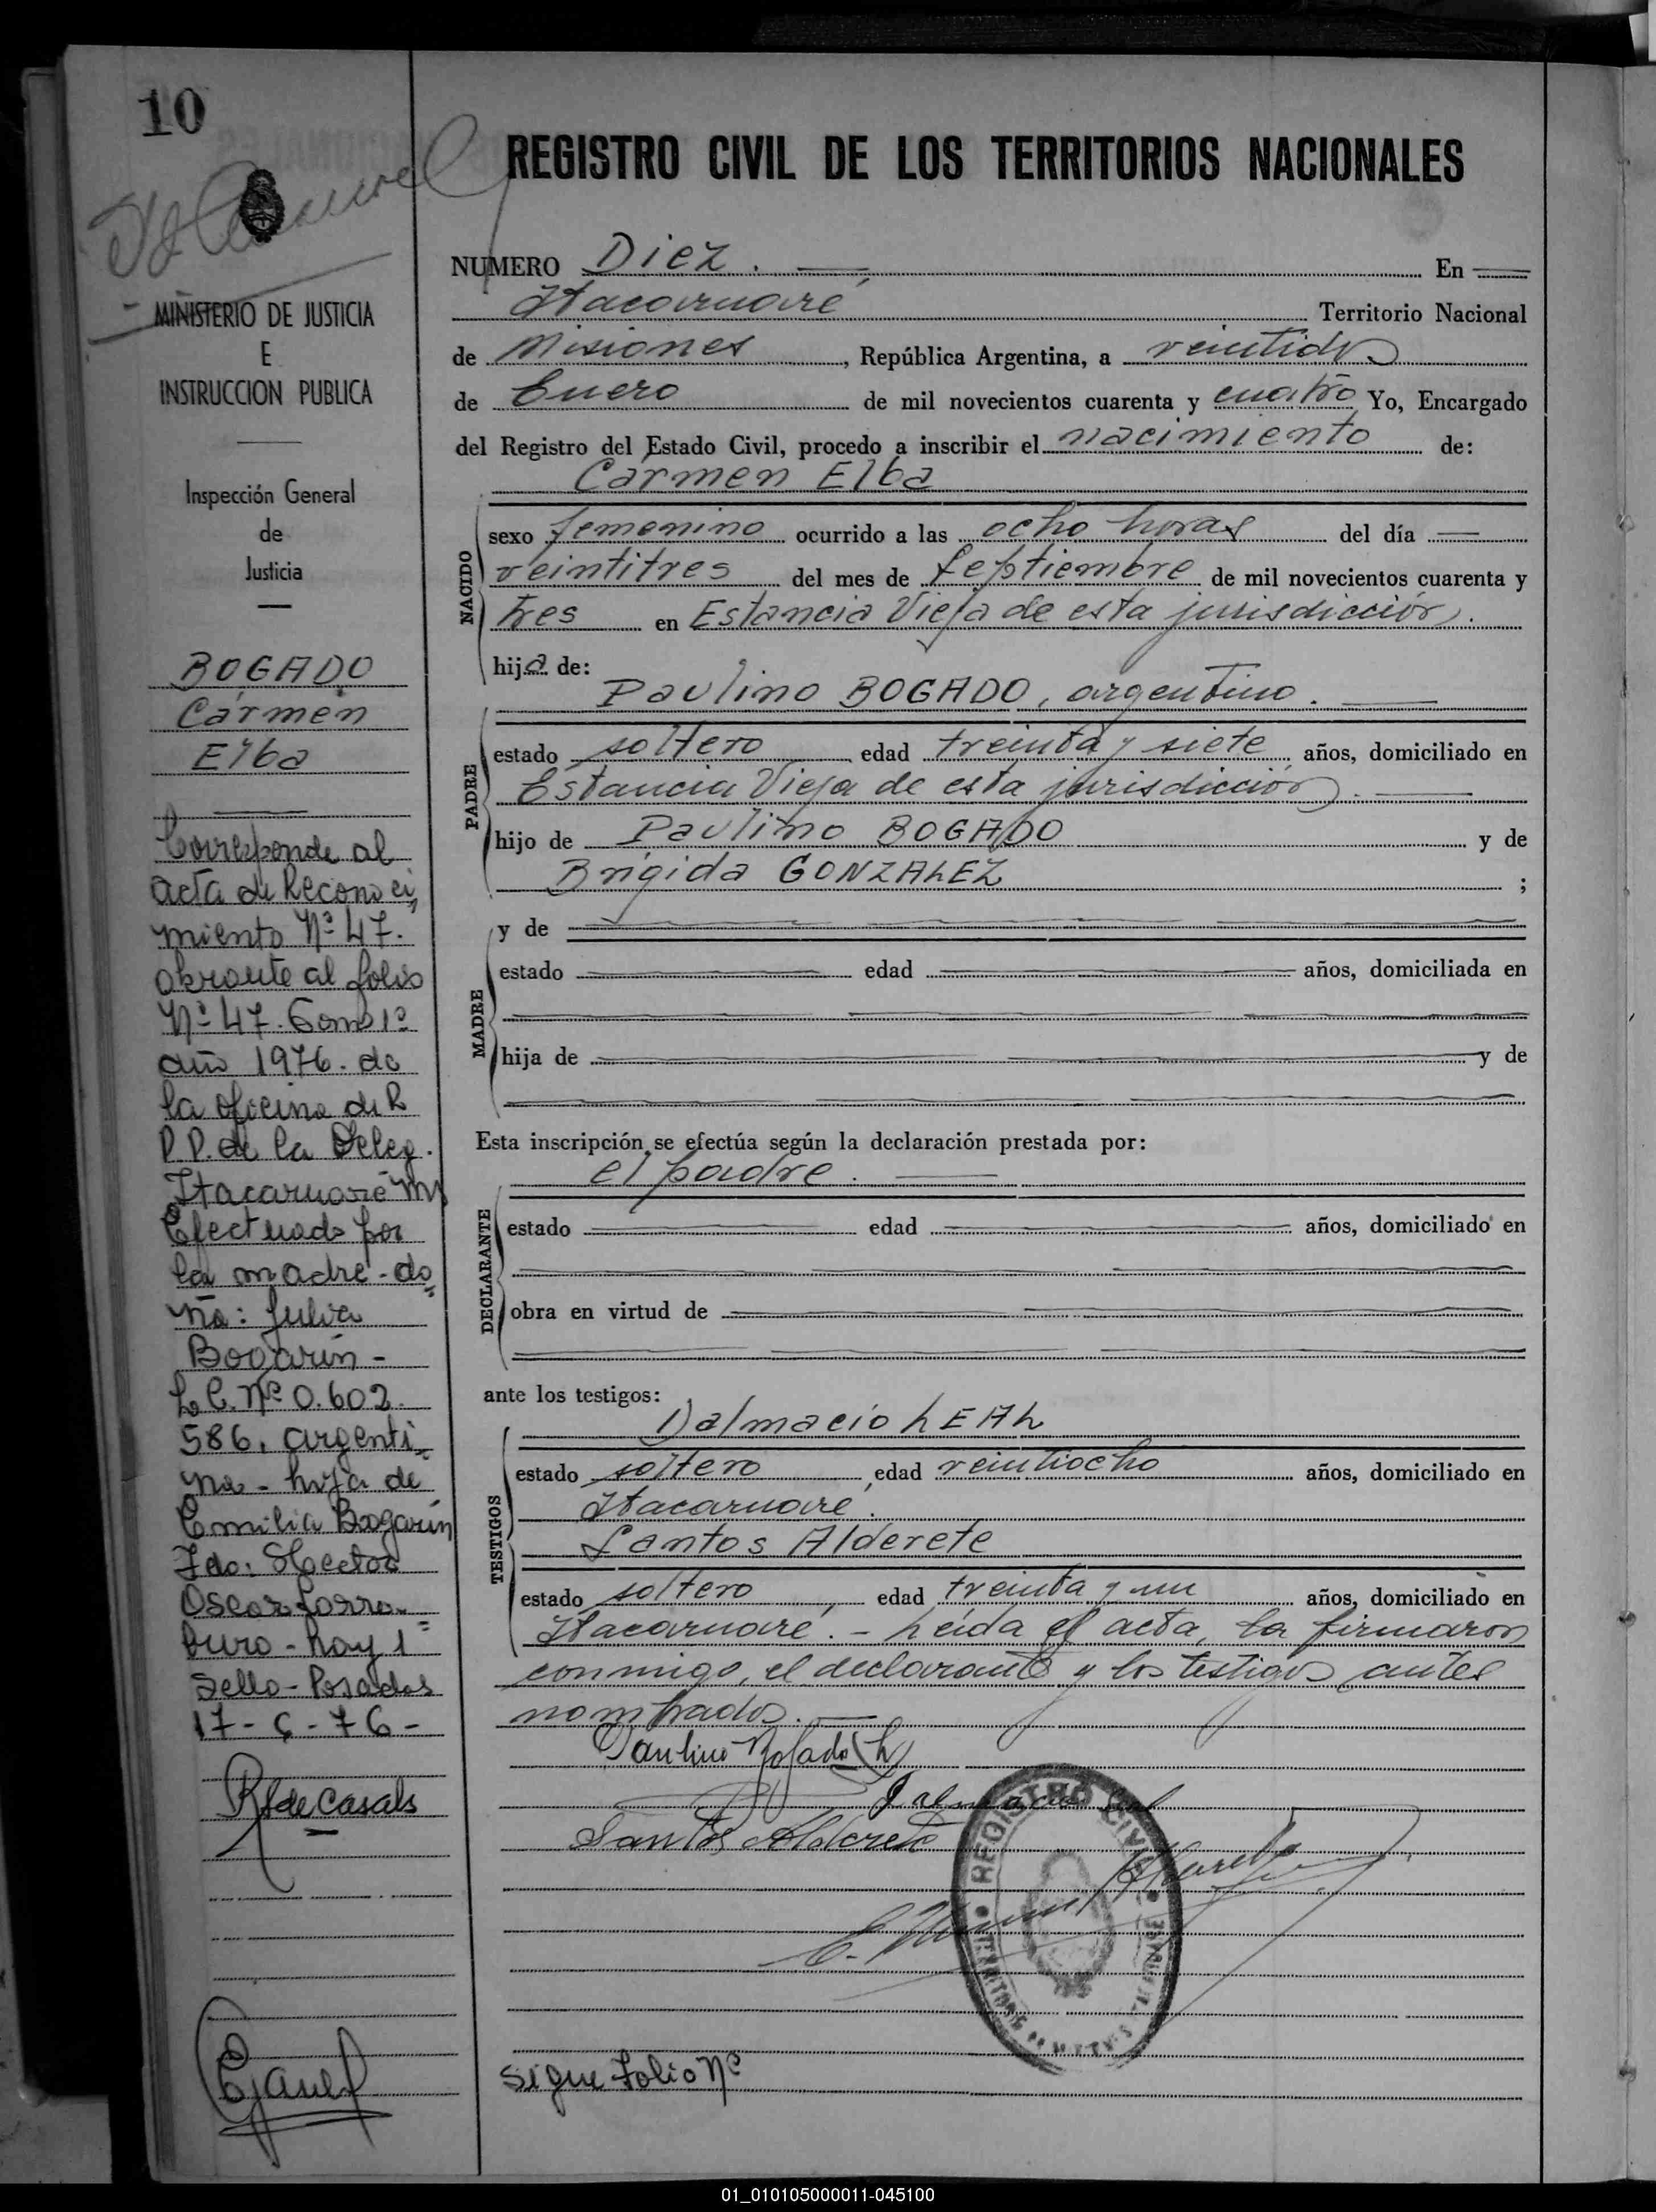 10
REGISTRO CIVIL DE LOS TERRITORIOS NACIONALES
MINISTERIO DE JUSTICIA
E
INSTRUCCION PUBLICA
Inspección General
de
Justicia
BOGADO
Carmen
Elba
Corresponde al
acta de Reconoci
miento Nº 47.
obrante al folio
Nº 47. Tomo 1º
año 1976. de
la oficina de R
P.P. de la Deleg.
Itacaruaré Ms
Efectuado por
la madre - do
ña: Julia
Bogarin -
L.C. Nº 0.602.
586, argenti
na - hija de
Emilia Bogarin
Fdo: Hector
Oscar
buro - hay 1
Sello - Posadas
17-6-76-
R de Casals
NUMERO Diez. En
Itacaruaré Territorio Nacional
de Misiones, República Argentina, a veintidos
de Enero de mil novecientos cuarenta y cuatro Yo, Encargado
del Registro del Estado Civil, procedo a inscribir el nacimiento de:
Carmen Elba
NACIDO
sexo femenino ocurrido a las ocho horas del día
veintitres del mes de Septiembre de mil novecientos cuarenta y
tres en Estancia Vieja de esta jurisdicción.
hija de:
Paulino BOGADO, argentino.
PADRE
estado soltero edad treinta y siete años, domiciliado en
Estancia Vieja de esta jurisdicción.
hijo de Paulino BOGADO y de
Brígida GONZALEZ ;
MADRE
y de
estado edad años, domiciliada en
hija de y de
Esta inscripción se efectúa según la declaración prestada por:
el padre.
DECLARANTE
estado edad años, domiciliado en
obra en virtud de
ante los testigos:
TESTIGOS
Dalmacio LEAL
estado soltero edad veintiocho años, domiciliado en
Itacaruaré.
Santos Alderete
estado soltero, edad treinta y un años, domiciliado en
Itacaruaré. - Leída el acta, la firmaron
conmigo, el declarante y los testigos antes
nombrados.
Paulino Bogado (h)
Dalmacio Leal
Santos Alderete
REGISTRO CIVIL
Sigue Folio Nº
01_010105000011-045100